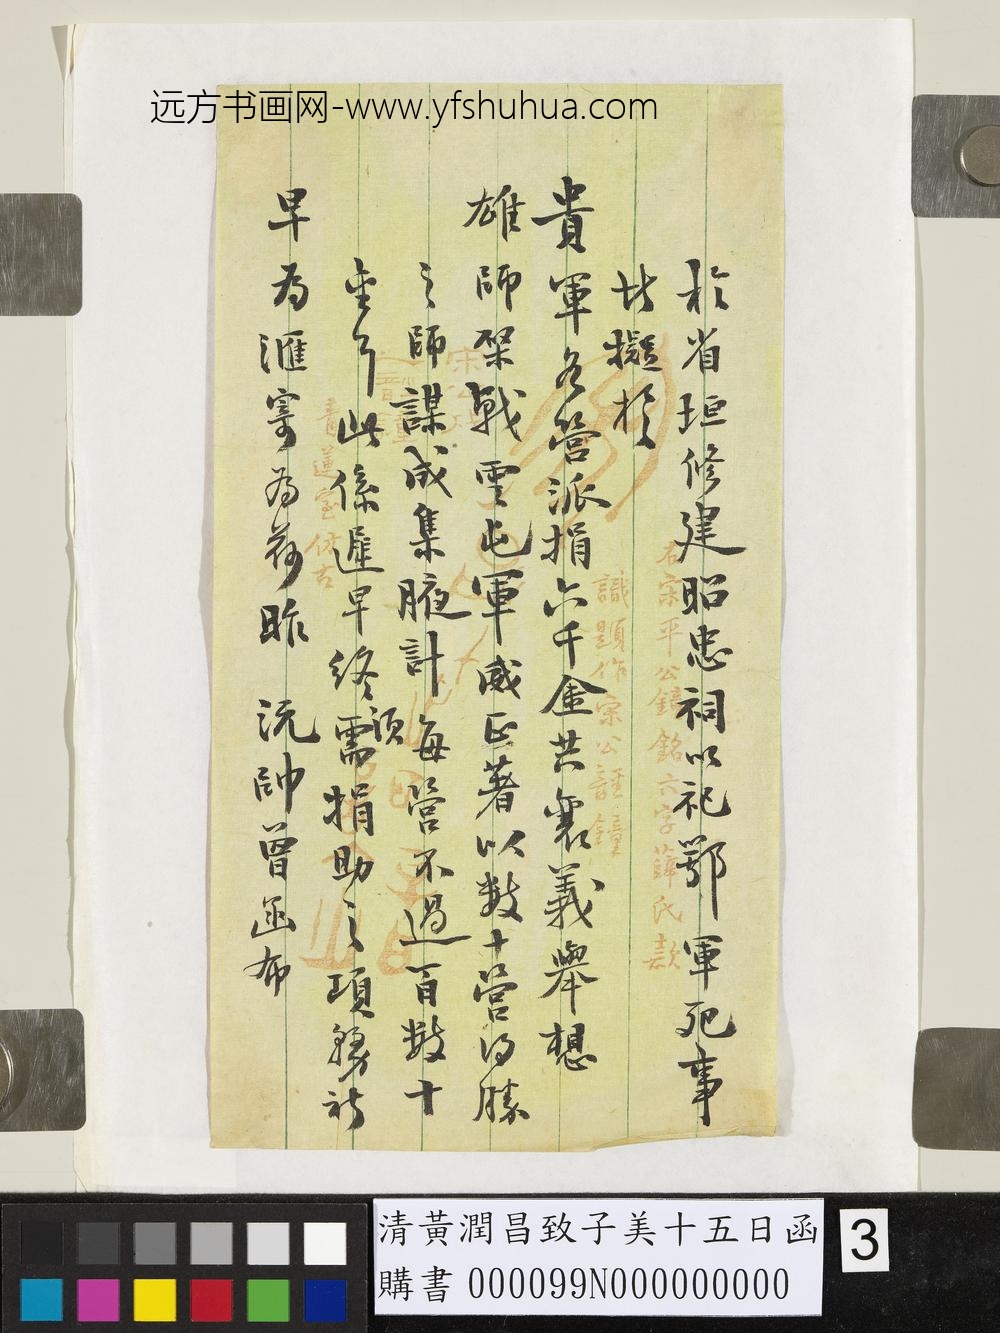 远方书画网-www.yfshuhua.com
於省垣修建昭忠祠以祀鄂軍死事
擬於
貴軍各營派捐六千金共襄義舉想
雄師架戰雲屯軍威正著以數十營得勝
之師謀成集腋計每營不過百數十
金耳此係遲早終須需捐助之項務祈
早為滙寄為荷昨 沅帥曾函布
右宋平公鐘銘六字薛氏款
識題作宋公鐘
青蓮室仿古
清黃潤昌致子美十五日函
購書 000099N000000000
3